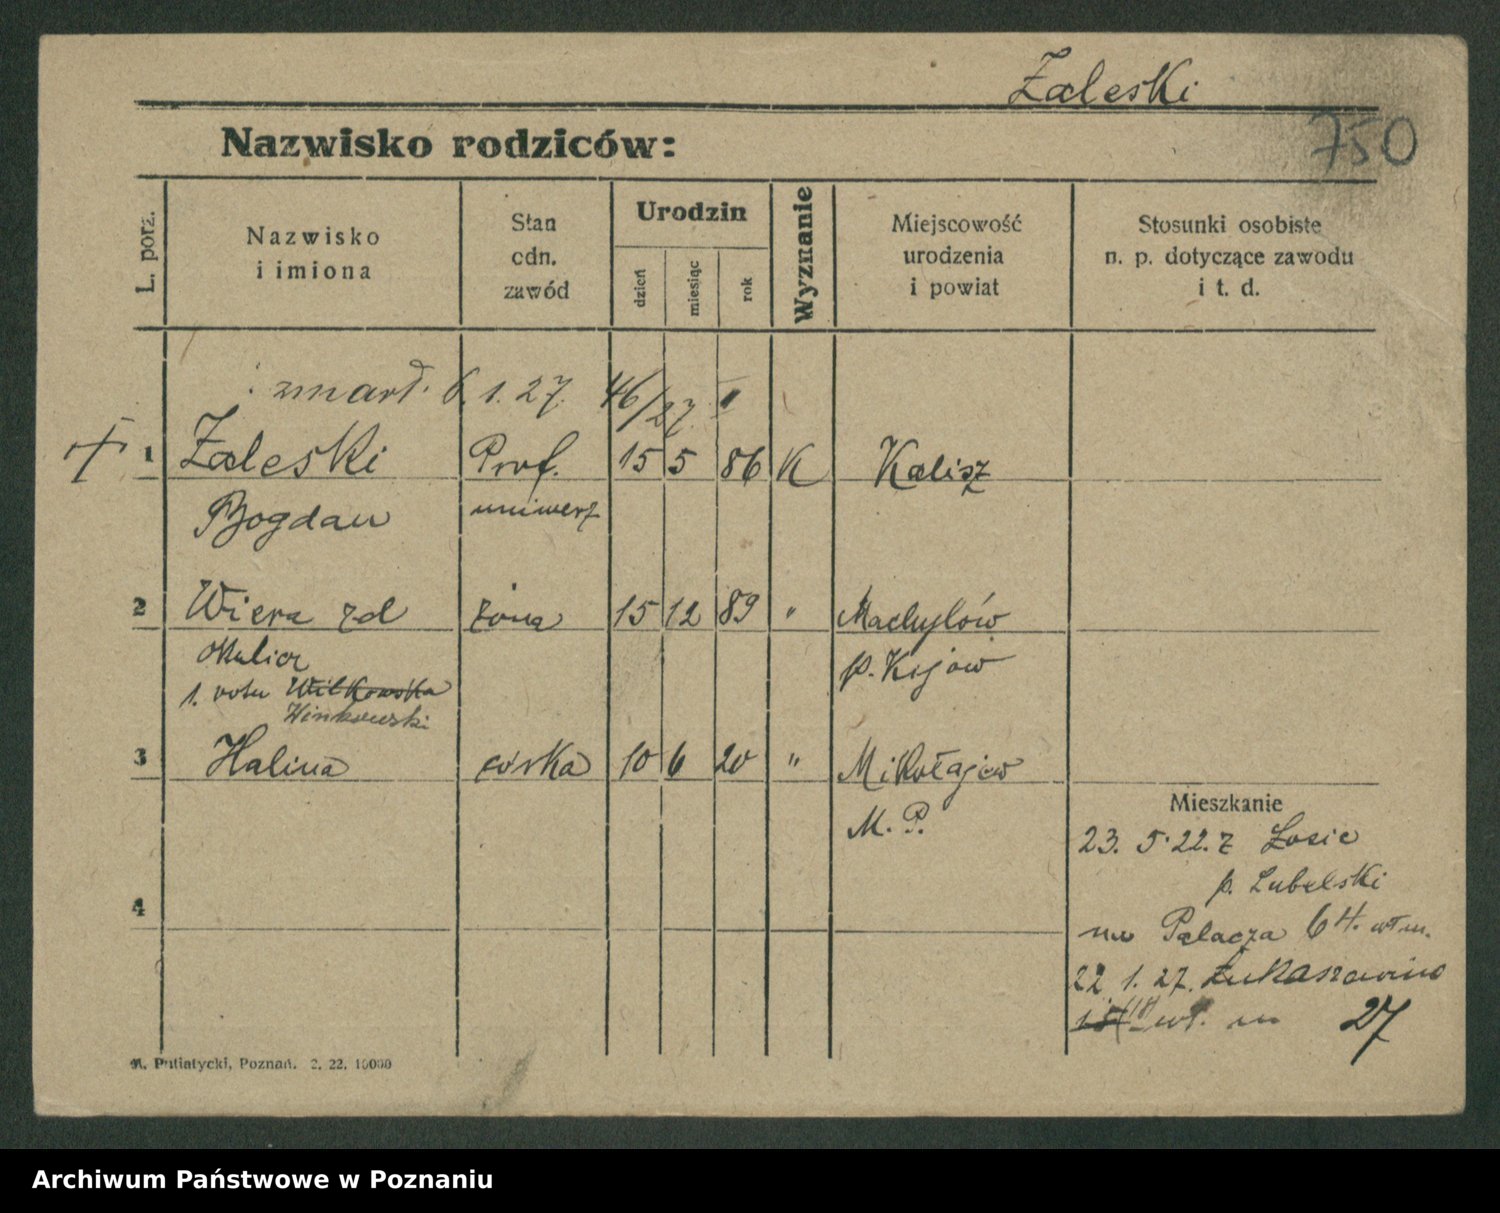 Zaleski
750
Nazwisko rodziców:
L. porz.
Nazwisko
i imiona
Stan
cdn.
zawód
Urodzin
dzień
miesiąc
rok
Wyznanie
Miejscowość
urodzenia
i powiat
Stosunki osobiste
n. p. dotyczące zawodu
i t. d.
zmarł. 6.1.27. 46/27
+ 1 Zaleski Prof. 15 5 86 K Kalisz
Bogdan uniwerz
2 Wiera zd żona 15 12 89 " Machylów
Okulicz p. Kijów
1. votu Wilkowska
Winkowski
3 Halina córka 10 6 20 " Mikołajew
M. P.
Mieszkanie
23. 5. 22. z Łosic
p. Lubelski
na Palacza 64. wł m.
4
22 1. 27. Łukaszewicza
wł. m 27
M. Putiatycki, Poznań. 2. 22. 10000
Archiwum Państwowe w Poznaniu